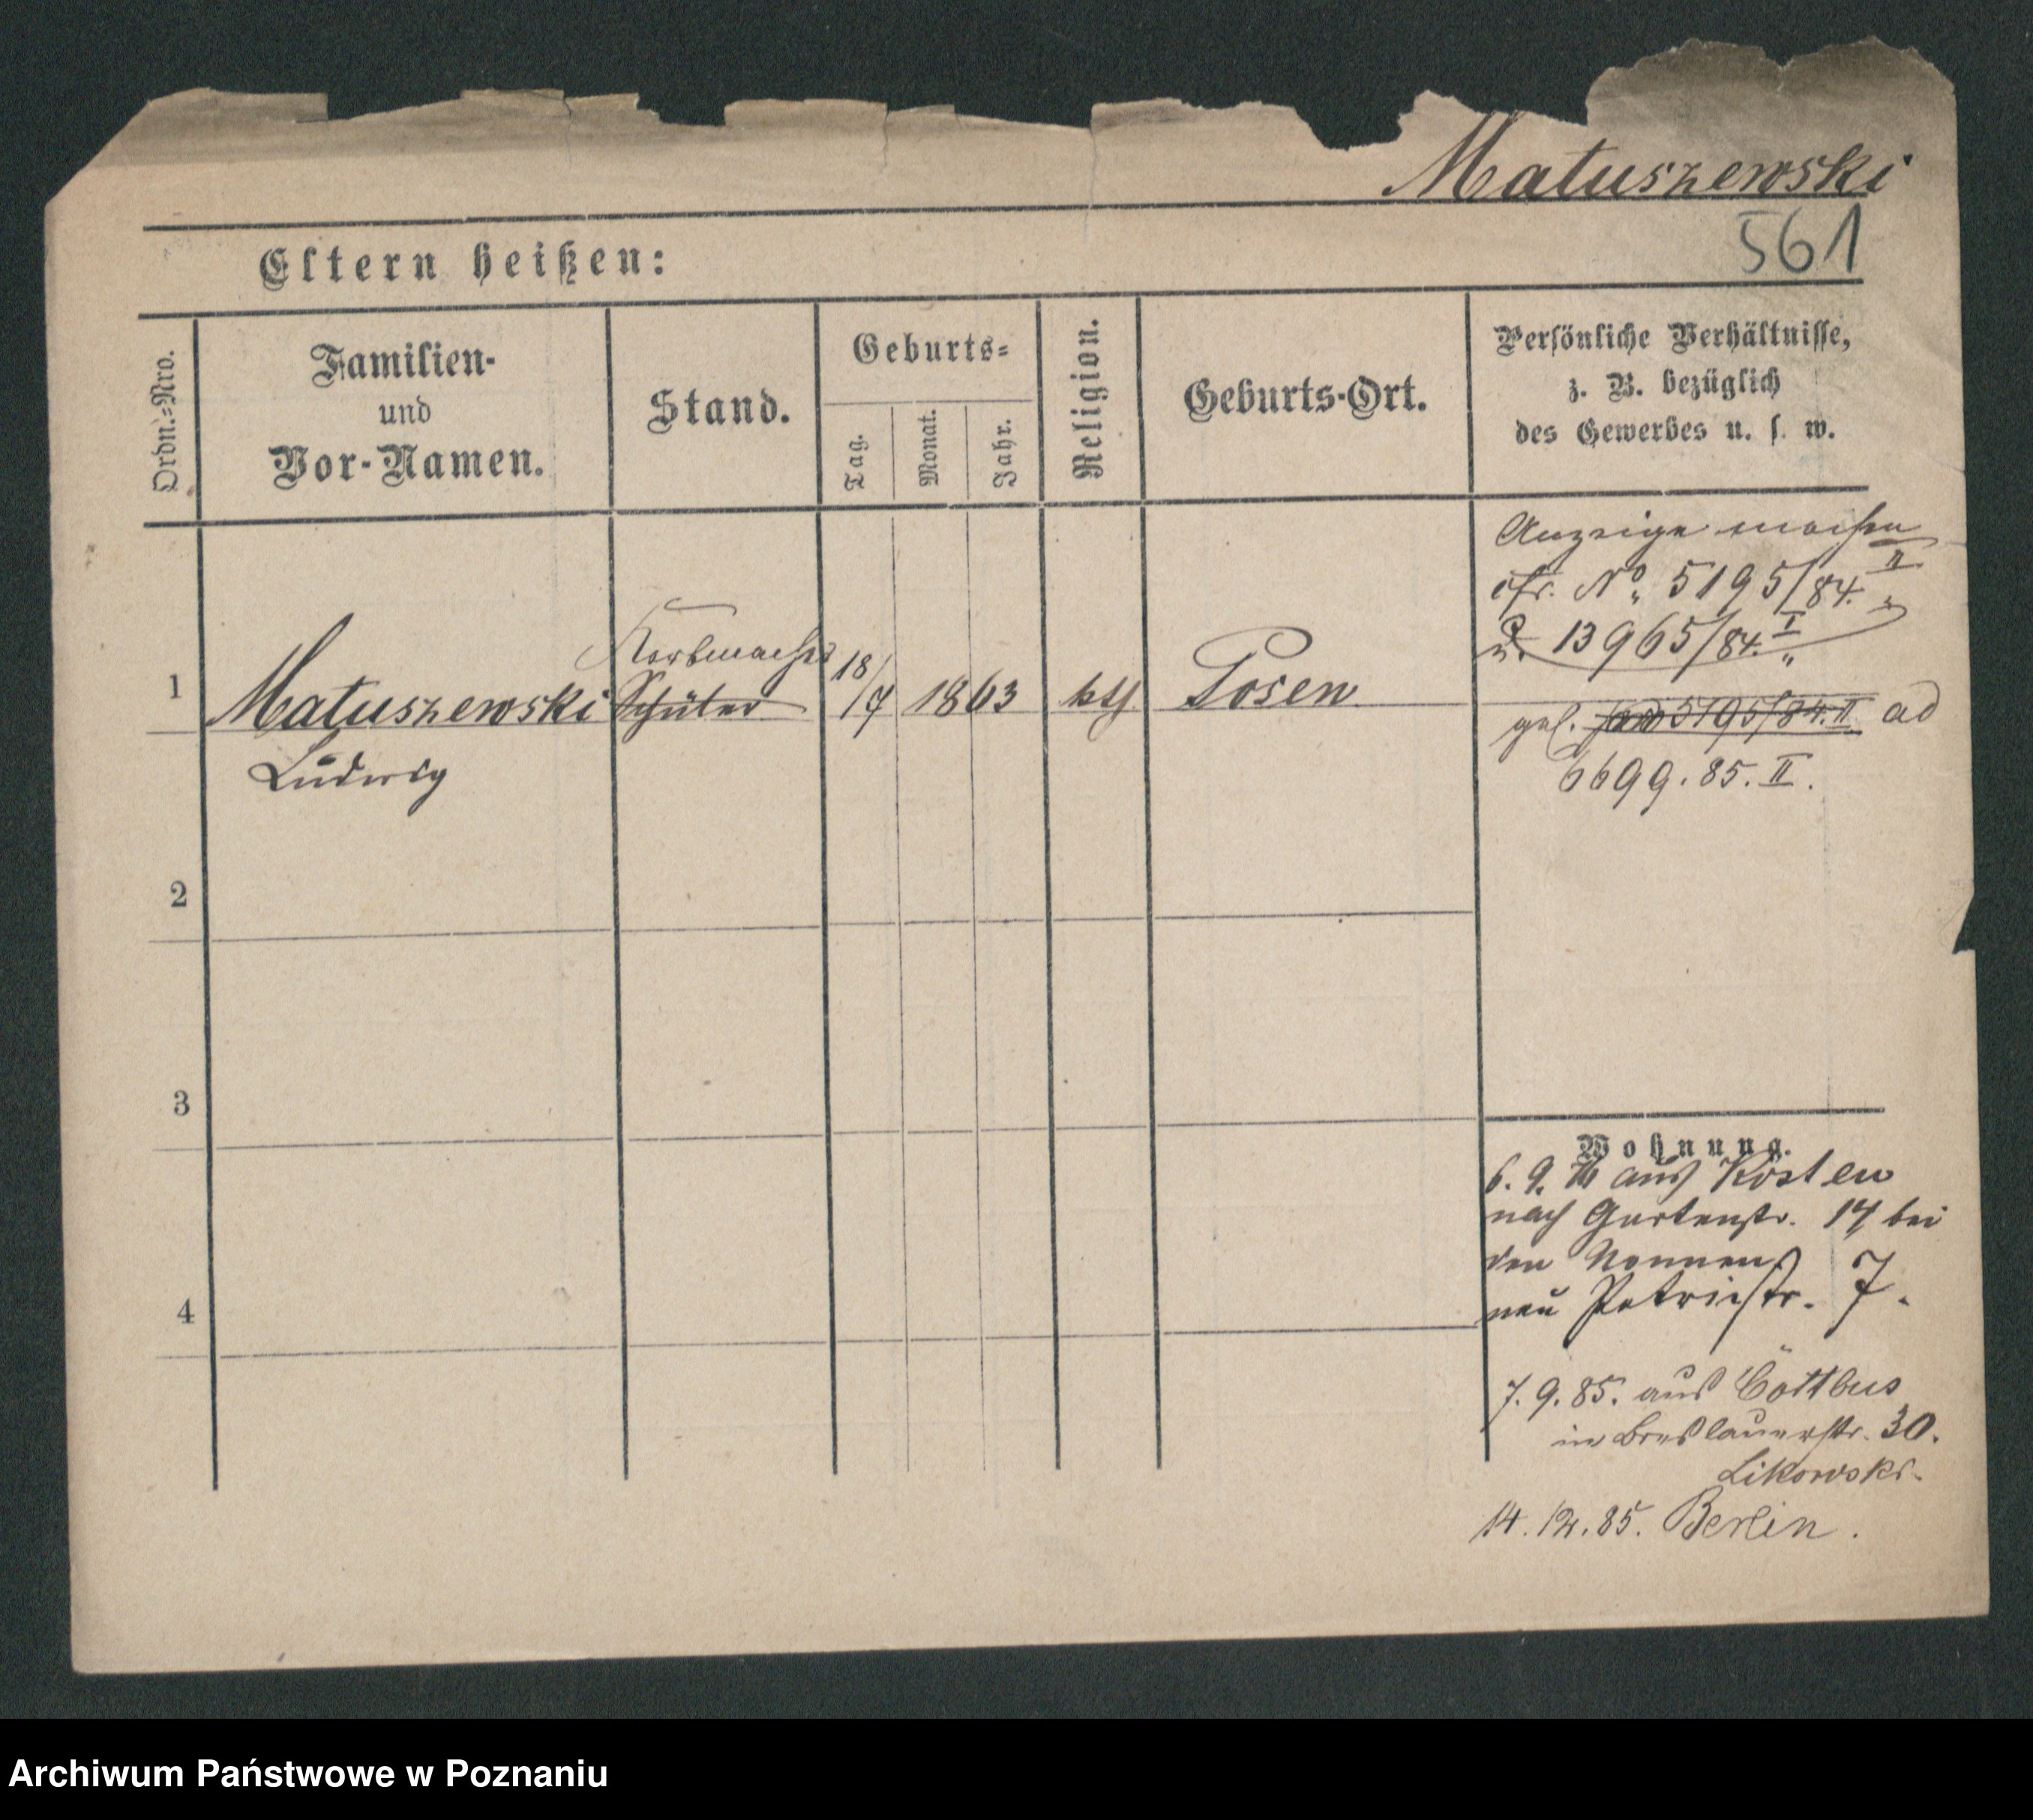 Matuszewski
561
Eltern heißen:
Ordn.-Nro.
Familien-
und
Vor-Namen.
Stand.
Geburts-
Tag.
Monat.
Jahr.
Religion.
Geburts-Ort.
Persönliche Verhältnisse,
z. B. bezüglich
des Gewerbes u. s. w.
Anzeige machen
cfr. No. 5195/84. II
u. 13965/84. I
1
Matuszewski
Ludwig
Korbmacher
Schüler
18/7 1863
kth
Posen
gel. ad 5195/84. II ad
6699. 85. II.
2
3
4
Wohnung.
6. 9. aus Kosten
nach Gartenstr. 14 bei
den Nonnen
neu Petristr. 7.
7. 9. 85. aus Cottbus
in Breslauerstr. 30.
Likowski.
14. 12. 85. Berlin.
Archiwum Państwowe w Poznaniu